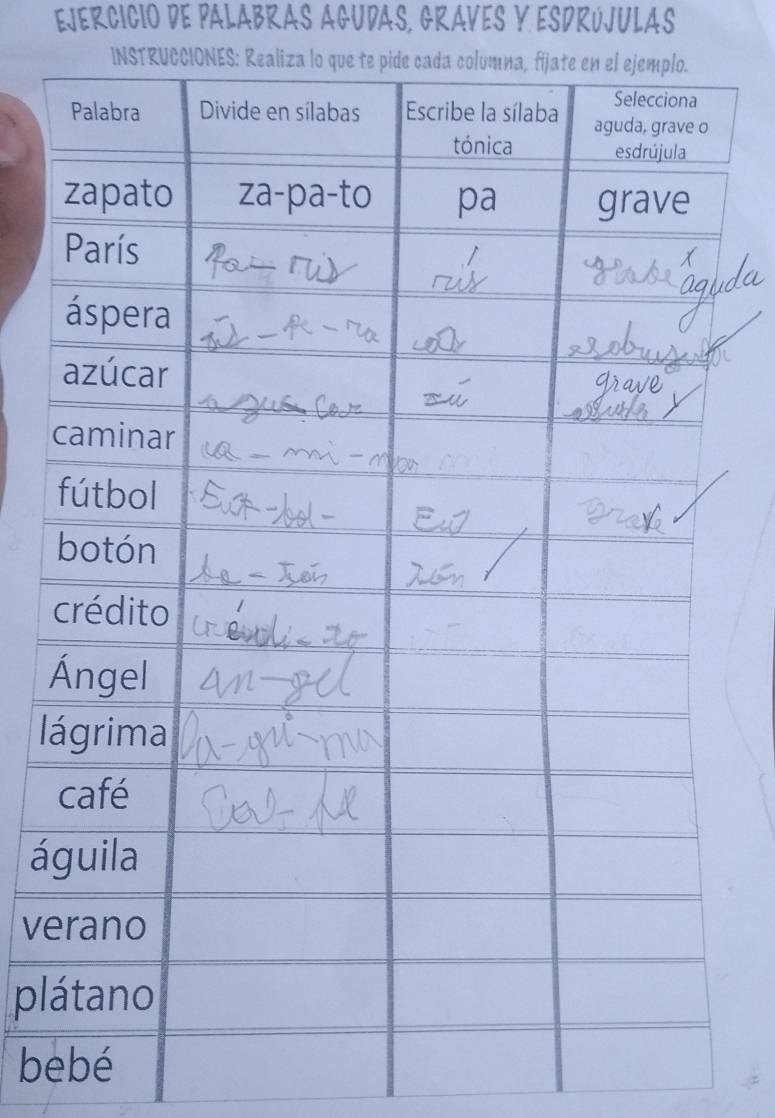 EJERCICIO DE PALABRAS AGUDAS, GRAVES Y ESDRÚJULAS
INSTRUCCIONES: Realiza lo que te pide cada columna, fíjate en el ejemplo.
Palabra Divide en sílabas Escribe la sílaba tónica Selecciona aguda, grave o esdrújula
zapato za-pa-to pa grave
París Pa-ris ris grabe x aguda
áspera ás-pe-ra
azúcar sú grave
caminar ca-mi-nar
fútbol Fut-bol- Fut grave
botón bo-tón tón
crédito
Ángel an-gel
lágrima la-gri-ma
café Ca-fe
águila
verano
plátano
bebé